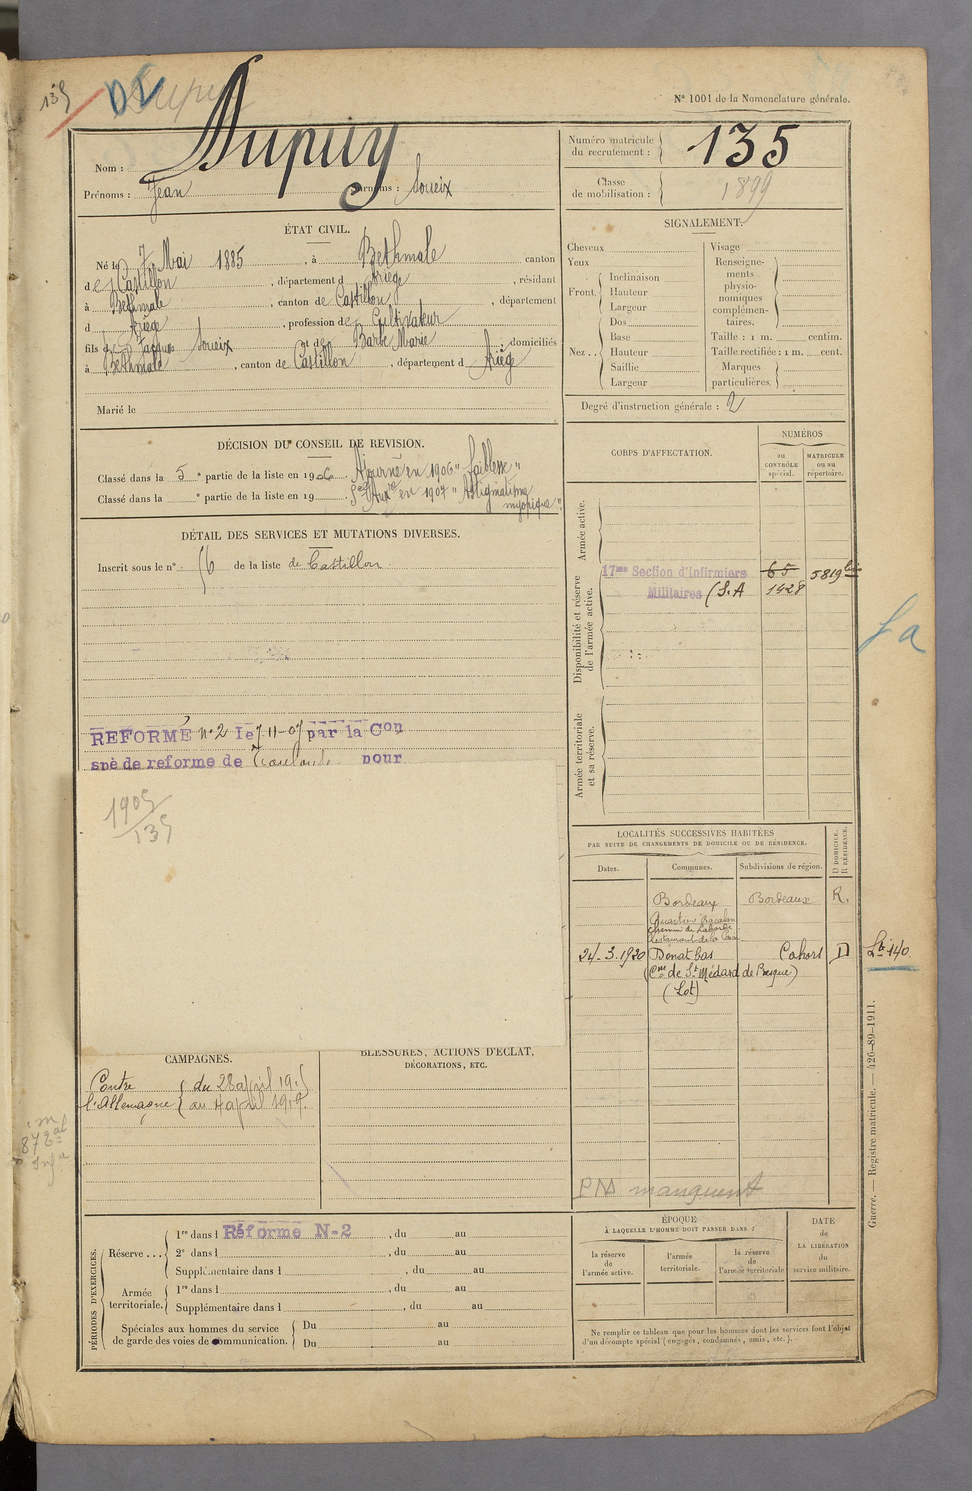 135
Dupuy
N° 1001 de la Nomenclature générale.
Nom : Dupuy
Prénoms : Jean Surnoms : Soueix
Numéro matricule du recrutement : 135
Classe de mobilisation : 1899
ÉTAT CIVIL.
Né le 7 Mai 1885, à Bethmale canton
de Castillon, département d Ariège, résidant
à Bethmale, canton de Castillon, département
d Ariège, profession de Cultivateur
fils de Jacques Soueix et de Barbe Marie, domiciliés
à Bethmale, canton de Castillon, département d Ariège
Marié le
SIGNALEMENT.
Cheveux
Yeux
Front. Inclinaison
Hauteur
Largeur
Nez . . Dos
Base
Hauteur
Saillie
Largeur
Visage
Renseignements physionomiques complémentaires.
Taille : 1 m. centim.
Taille rectifiée : 1 m. cent.
Marques particulières.
Degré d'instruction générale : 2
DÉCISION DU CONSEIL DE REVISION.
Classé dans la 5e partie de la liste en 1906. Ajourné en 1906 "faiblesse"
Classé dans la e partie de la liste en 19 . Sce Auxre en 1907 "Astigmatisme
myopique"
DÉTAIL DES SERVICES ET MUTATIONS DIVERSES.
Inscrit sous le n° 56 de la liste de Castillon
REFORMÉ n° 2 le 7-11-07 par la Con
spè de reforme de Toulouse pour
1905
135
CORPS D'AFFECTATION.
NUMÉROS
au CONTRÔLE spécial.
MATRICULE ou au répertoire.
Armée active.
Disponibilité et réserve de l'armée active.
17me Section d'Infirmiers 65 5819 bis
Militaires (S.A 1428
Armée territoriale et sa réserve.
Sa
LOCALITÉS SUCCESSIVES HABITÉES
PAR SUITE DE CHANGEMENTS DE DOMICILE OU DE RÉSIDENCE.
Dates. Communes. Subdivisions de région. D DOMICILE. R RÉSIDENCE.
Bordeaux Bordeaux R.
24-3-1920 Donat bas Cahors D
(Cne de St Médard de Presque)
(Lot)
PM manquent
CAMPAGNES.
Contre l'Allemagne { du 28 april 19.5
au 4 april 1919.
BLESSURES, ACTIONS D'ÉCLAT,
DÉCORATIONS, ETC.
PÉRIODES D'EXERCICES.
Réserve . . . 1re dans l Réforme N-2, du au
2e dans l , du au
Supplémentaire dans l , du au
Armée territoriale. 1re dans l , du au
Supplémentaire dans l , du au
Spéciales aux hommes du service
de garde des voies de communication. Du au
Du au
ÉPOQUE
À LAQUELLE L'HOMME DOIT PASSER DANS :
la réserve de l'armée active.
l'armée territoriale.
la réserve de l'armée territoriale
DATE de LA LIBÉRATION du service militaire.
Ne remplir ce tableau que pour les hommes dont les services font l'objet
d'un décompte spécial (engagés, condamnés, omis, etc.).
Guerre. — Registre matricule. — 426-89-1911.